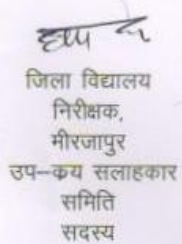 जिला विद्यालय
निरीक्षक,
मीरजापुर
उप–क्रय सलाहकार
समिति
सदस्य